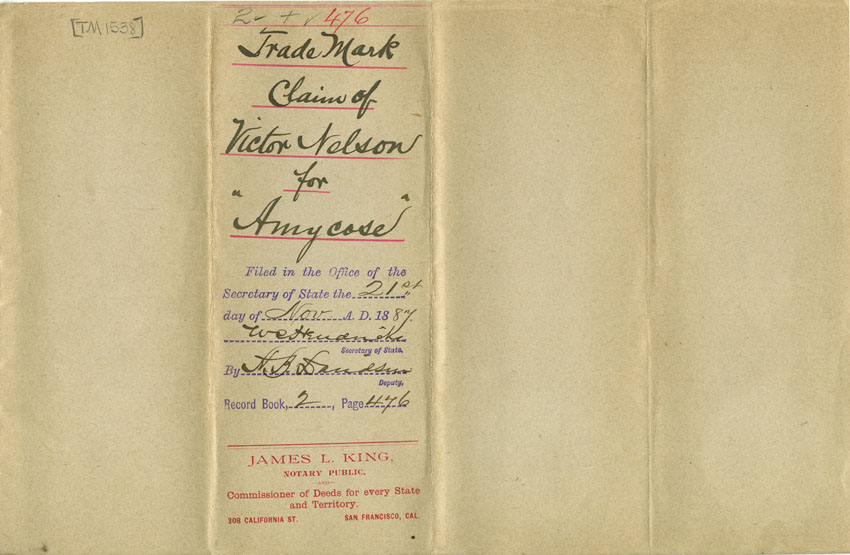 [TM 1538]
2- + v 476
Trade Mark
Claim of
Victor Nelson
for
"Amycose"
Filed in the Office of the
Secretary of State the 21st
day of Nov A. D. 1887.
Secretary of State.
By
Deputy,
Record Book, 2, Page 476
JAMES L. KING,
NOTARY PUBLIC,
—AND—
Commissioner of Deeds for every State
and Territory.
308 CALIFORNIA ST. SAN FRANCISCO, CAL